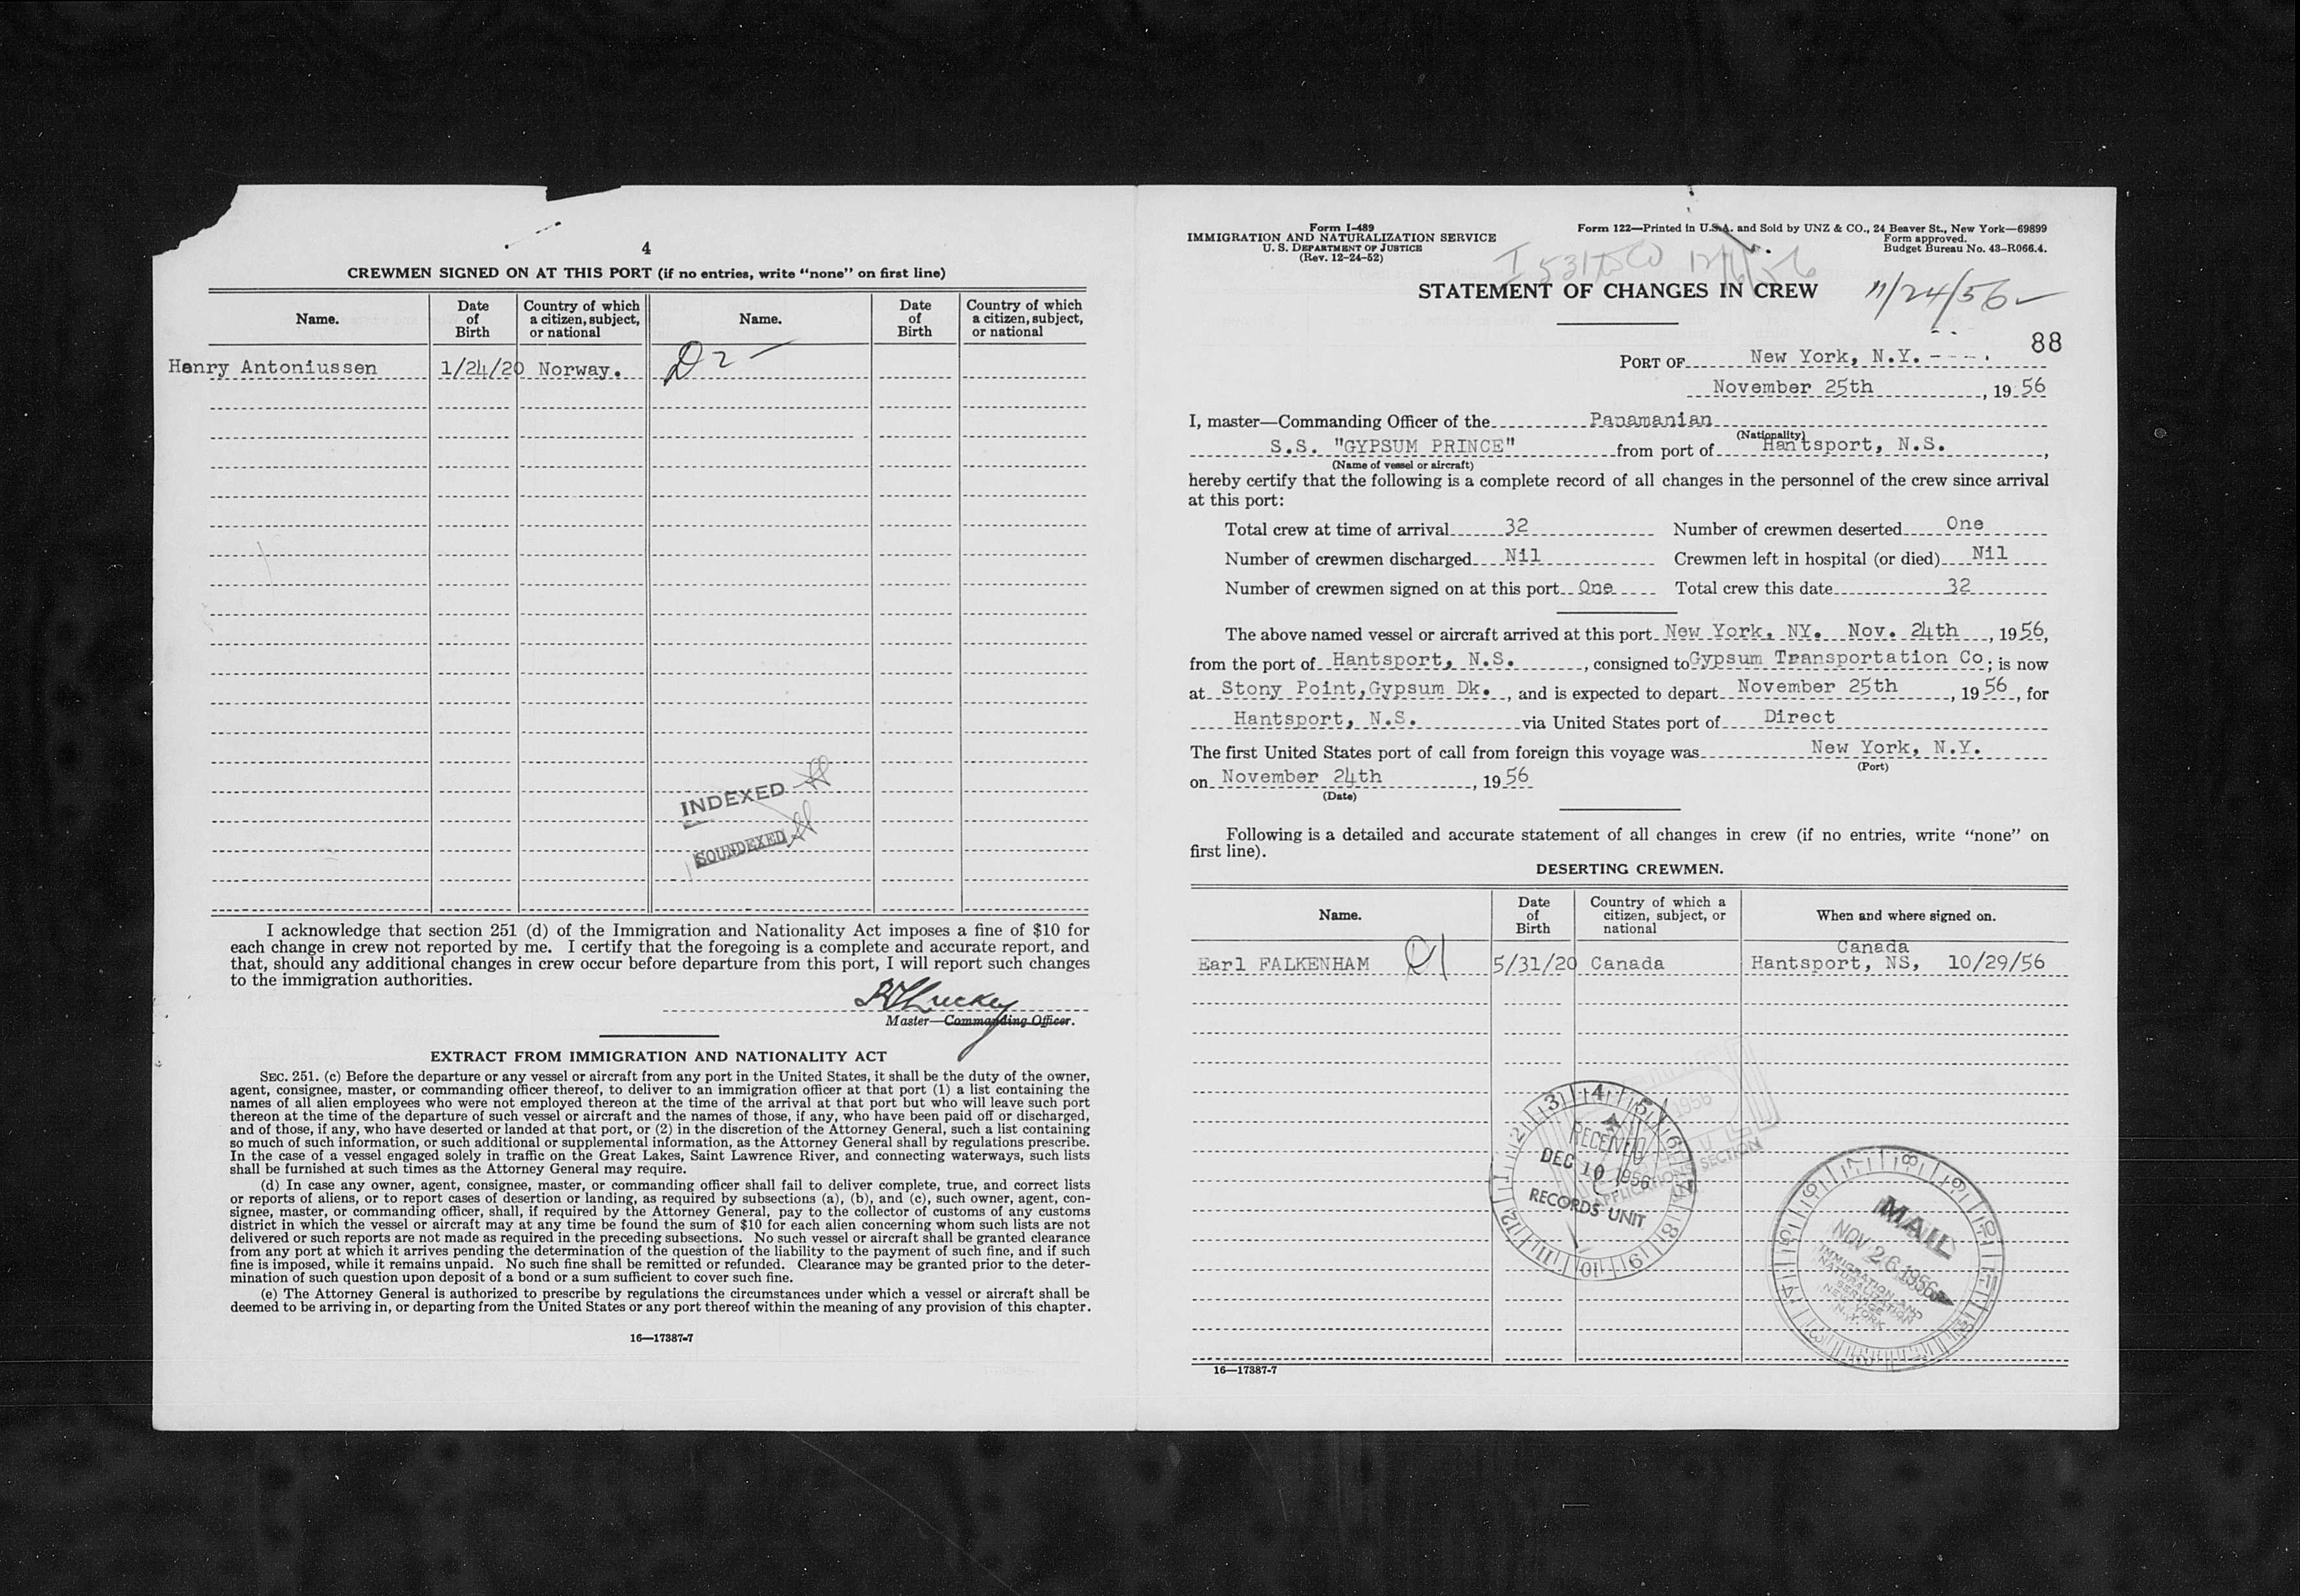 4
CREWMEN SIGNED ON AT THIS PORT (if no entries, write “none” on first line)
Name.
Date of Birth
Country of which a citizen, subject, or national
Name.
Date of Birth
Country of which a citizen, subject, or national
Henry Antoniussen 1/24/20 Norway. D2 —
INDEXED
SOUNDEXED
I acknowledge that section 251 (d) of the Immigration and Nationality Act imposes a fine of $10 for
each change in crew not reported by me. I certify that the foregoing is a complete and accurate report, and
that, should any additional changes in crew occur before departure from this port, I will report such changes
to the immigration authorities.
Master—Commanding Officer.
EXTRACT FROM IMMIGRATION AND NATIONALITY ACT
SEC. 251. (c) Before the departure or any vessel or aircraft from any port in the United States, it shall be the duty of the owner,
agent, consignee, master, or commanding officer thereof, to deliver to an immigration officer at that port (1) a list containing the
names of all alien employees who were not employed thereon at the time of the arrival at that port but who will leave such port
thereon at the time of the departure of such vessel or aircraft and the names of those, if any, who have been paid off or discharged,
and of those, if any, who have deserted or landed at that port, or (2) in the discretion of the Attorney General, such a list containing
so much of such information, or such additional or supplemental information, as the Attorney General shall by regulations prescribe.
In the case of a vessel engaged solely in traffic on the Great Lakes, Saint Lawrence River, and connecting waterways, such lists
shall be furnished at such times as the Attorney General may require.
(d) In case any owner, agent, consignee, master, or commanding officer shall fail to deliver complete, true, and correct lists
or reports of aliens, or to report cases of desertion or landing, as required by subsections (a), (b), and (c), such owner, agent, con-
signee, master, or commanding officer, shall, if required by the Attorney General, pay to the collector of customs of any customs
district in which the vessel or aircraft may at any time be found the sum of $10 for each alien concerning whom such lists are not
delivered or such reports are not made as required in the preceding subsections. No such vessel or aircraft shall be granted clearance
from any port at which it arrives pending the determination of the question of the liability to the payment of such fine, and if such
fine is imposed, while it remains unpaid. No such fine shall be remitted or refunded. Clearance may be granted prior to the deter-
mination of such question upon deposit of a bond or a sum sufficient to cover such fine.
(e) The Attorney General is authorized to prescribe by regulations the circumstances under which a vessel or aircraft shall be
deemed to be arriving in, or departing from the United States or any port thereof within the meaning of any provision of this chapter.
16—17387-7
Form I-489
IMMIGRATION AND NATURALIZATION SERVICE
U. S. DEPARTMENT OF JUSTICE
(Rev. 12-24-52)
Form 122—Printed in U.S.A. and Sold by UNZ & CO., 24 Beaver St., New York—69899
Form approved.
Budget Bureau No. 43-R066.4.
STATEMENT OF CHANGES IN CREW
11/24/56
88
PORT OF New York, N.Y.
November 25th, 1956
I, master—Commanding Officer of the Panamanian
(Nationality)
S.S. "GYPSUM PRINCE" from port of Hantsport, N.S.,
(Name of vessel or aircraft)
hereby certify that the following is a complete record of all changes in the personnel of the crew since arrival
at this port:
Total crew at time of arrival 32 Number of crewmen deserted One
Number of crewmen discharged Nil Crewmen left in hospital (or died) Nil
Number of crewmen signed on at this port One Total crew this date 32
The above named vessel or aircraft arrived at this port New York, NY. Nov. 24th, 1956,
from the port of Hantsport, N.S., consigned to Gypsum Transportation Co; is now
at Stony Point, Gypsum Dk., and is expected to depart November 25th, 1956, for
Hantsport, N.S. via United States port of Direct
The first United States port of call from foreign this voyage was New York, N.Y.
(Port)
on November 24th, 1956
(Date)
Following is a detailed and accurate statement of all changes in crew (if no entries, write “none” on
first line).
DESERTING CREWMEN.
Name.
Date of Birth
Country of which a citizen, subject, or national
When and where signed on.
Canada
Earl FALKENHAM D1 5/31/20 Canada Hantsport, NS, 10/29/56
RECEIVED
DEC 10 1956
RECORDS UNIT
APPLICATIONS SECTION
1956
MAIL
NOV 26 1956
IMMIGRATION AND
NATURALIZATION
SERVICE
NEW YORK
N.Y.
16—17387-7